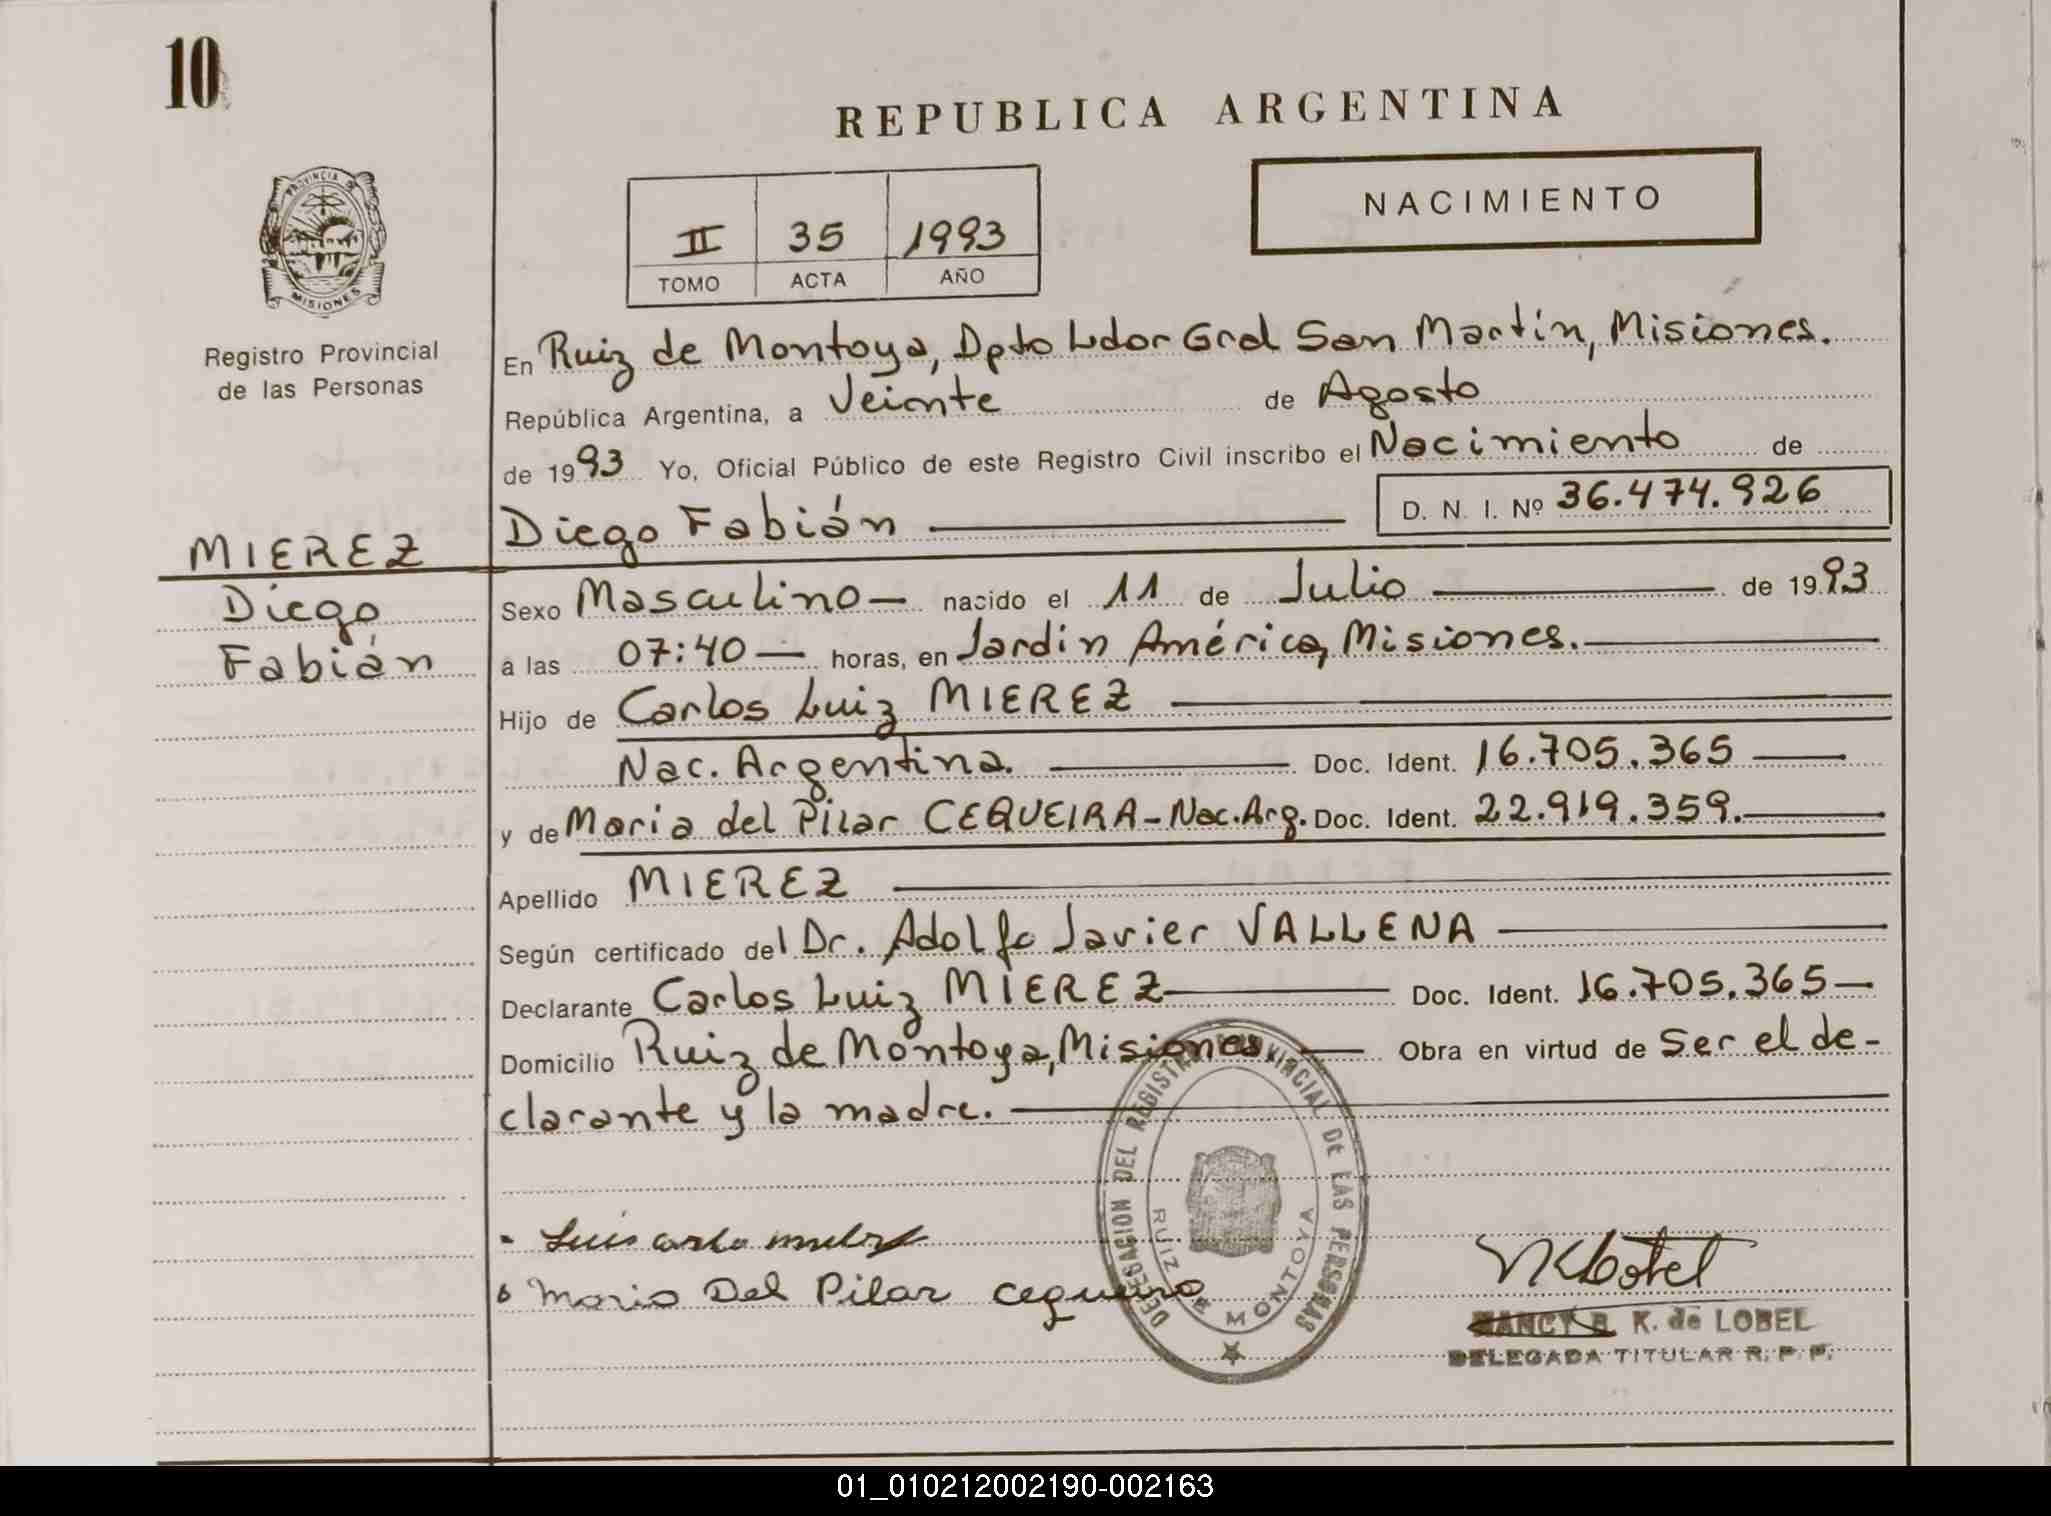 10
REPUBLICA ARGENTINA
NACIMIENTO
II 35 1993
TOMO ACTA AÑO
PROVINCIA DE
MISIONES
Registro Provincial
de las Personas
En Ruiz de Montoya, Dpto Ldor Gral San Martín, Misiones.
República Argentina, a Veinte de Agosto
de 1993 Yo, Oficial Público de este Registro Civil inscribo el Nacimiento de
Diego Fabián D. N. I. Nº 36.474.926
MIEREZ
Diego
Fabián
Sexo Masculino — nacido el 11 de Julio — de 1993
a las 07:40 — horas, en Jardín América, Misiones. —
Hijo de Carlos Luiz MIEREZ —
Nac. Argentina. — Doc. Ident. 16.705.365 —
y de Maria del Pilar CEQUEIRA - Nac. Arg. Doc. Ident. 22.919.359. —
Apellido MIEREZ —
Según certificado del Dr. Adolfo Javier VALLENA —
Declarante Carlos Luiz MIEREZ — Doc. Ident. 16.705.365 —
Domicilio Ruiz de Montoya, Misiones. — Obra en virtud de Ser el de-
clarante y la madre. —
DELEGACION DEL REGISTRO PROVINCIAL DE LAS PERSONAS
RUIZ DE MONTOYA
Luis
Maria Del Pilar cequeira
NANCY B. K. de LOBEL
DELEGADA TITULAR R. P. P.
01_010212002190-002163